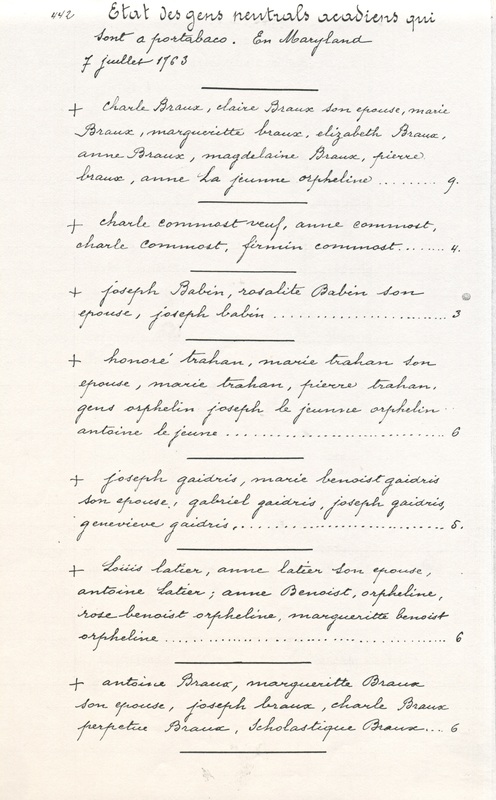 442 Etat des gens neutrals acadiens qui
sont a portabaco. En Maryland
7 juillet 1763
+ charle Braux, claire Braux son epouse, marie
Braux, margueritte braux, elizabeth Braux,
anne Braux, magdelaine Braux, pierre
braux, anne La jeunne orpheline ........ 9.
+ charle commost veuf, anne commost,
charle commost, firmin commost........ 4.
+ joseph Babin, rosalite Babin son
epouse, joseph babin ........................ 3
+ honoré trahan, marie trahan son
epouse, marie trahan, pierre trahan.
gens orphelin joseph le jeunne orphelin
antoine le jeune ................................ 6
+ joseph gaidris, marie benoist gaidris
son epouse, gabriel gaidris, joseph gaidris,
genevieve gaidris,................................ 5.
+ Loüis latier, anne latier son epouse,
antoine Latier; anne Benoist, orpheline,
rose benoist orpheline, margueritte benoist
orpheline ........................................ 6
+ antoine Braux, margueritte Braux
son epouse, joseph braux, charle Braux
perpetue Braux, Scholastique Braux.... 6